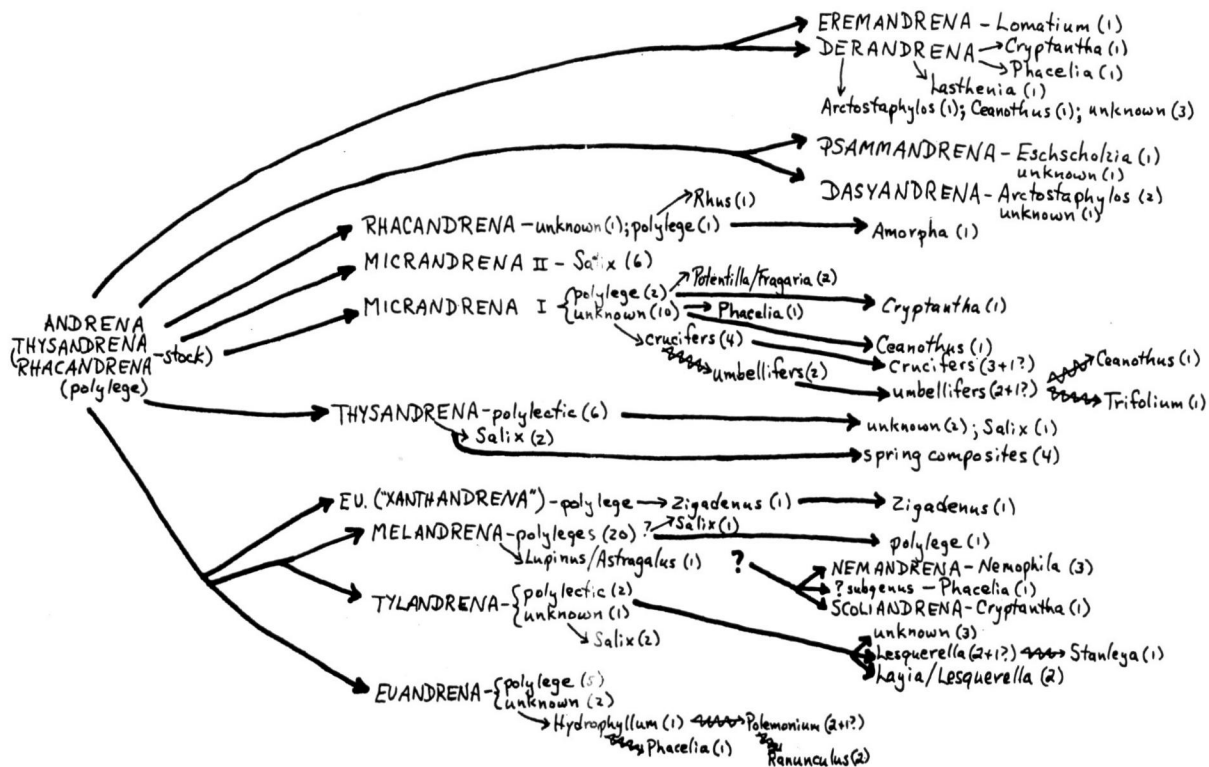 EREMANDRENA – Lomatium (1)
DERANDRENA Cryptantha (1)
Phacelia (1)
Lasthenia (1)
Arctostaphylos (1); Ceanothus (1); unknown (3)
PSAMMANDRENA – Eschscholzia (1)
unknown (1)
DASYANDRENA – Arctostaphylos (2)
unknown (1)
Rhus (1)
RHACANDRENA – unknown (1); polylege (1) Amorpha (1)
MICRANDRENA II – Salix (6)
Potentilla/Fragaria (2)
MICRANDRENA I { polylege (2) Cryptantha (1)
unknown (10) Phacelia (1)
Ceanothus (1)
crucifers (4) crucifers (3+1?) Ceanothus (1)
umbellifers (2) umbellifers (2+1?) Trifolium (1)
ANDRENA
THYSANDRENA
(RHACANDRENA –stock)
(polylege)
THYSANDRENA – polylectic (6) unknown (2); Salix (1)
Salix (2)
spring composites (4)
EU. ("XANTHANDRENA") – polylege Zigadenus (1) Zigadenus (1)
MELANDRENA – polyleges (20) ? Salix (1) polylege (1)
Lupinus/Astragalus (1)
? NEMANDRENA – Nemophila (3)
? subgenus – Phacelia (1)
SCOLIANDRENA – Cryptantha (1)
TYLANDRENA – { polylectic (2)
unknown (1)
Salix (2)
unknown (3)
Lesquerella (2+1?) Stanleya (1)
Layia/Lesquerella (2)
EUANDRENA – { polylege (5)
unknown (2)
Hydrophyllum (1) Polemonium (2+1?)
Phacelia (1)
Ranunculus (2)